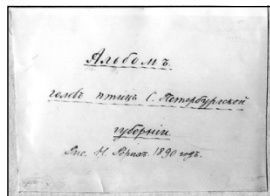 Альбомъ
головъ птицъ С. Петербургской
губерніи.
Рис. Н. 1890 годъ.